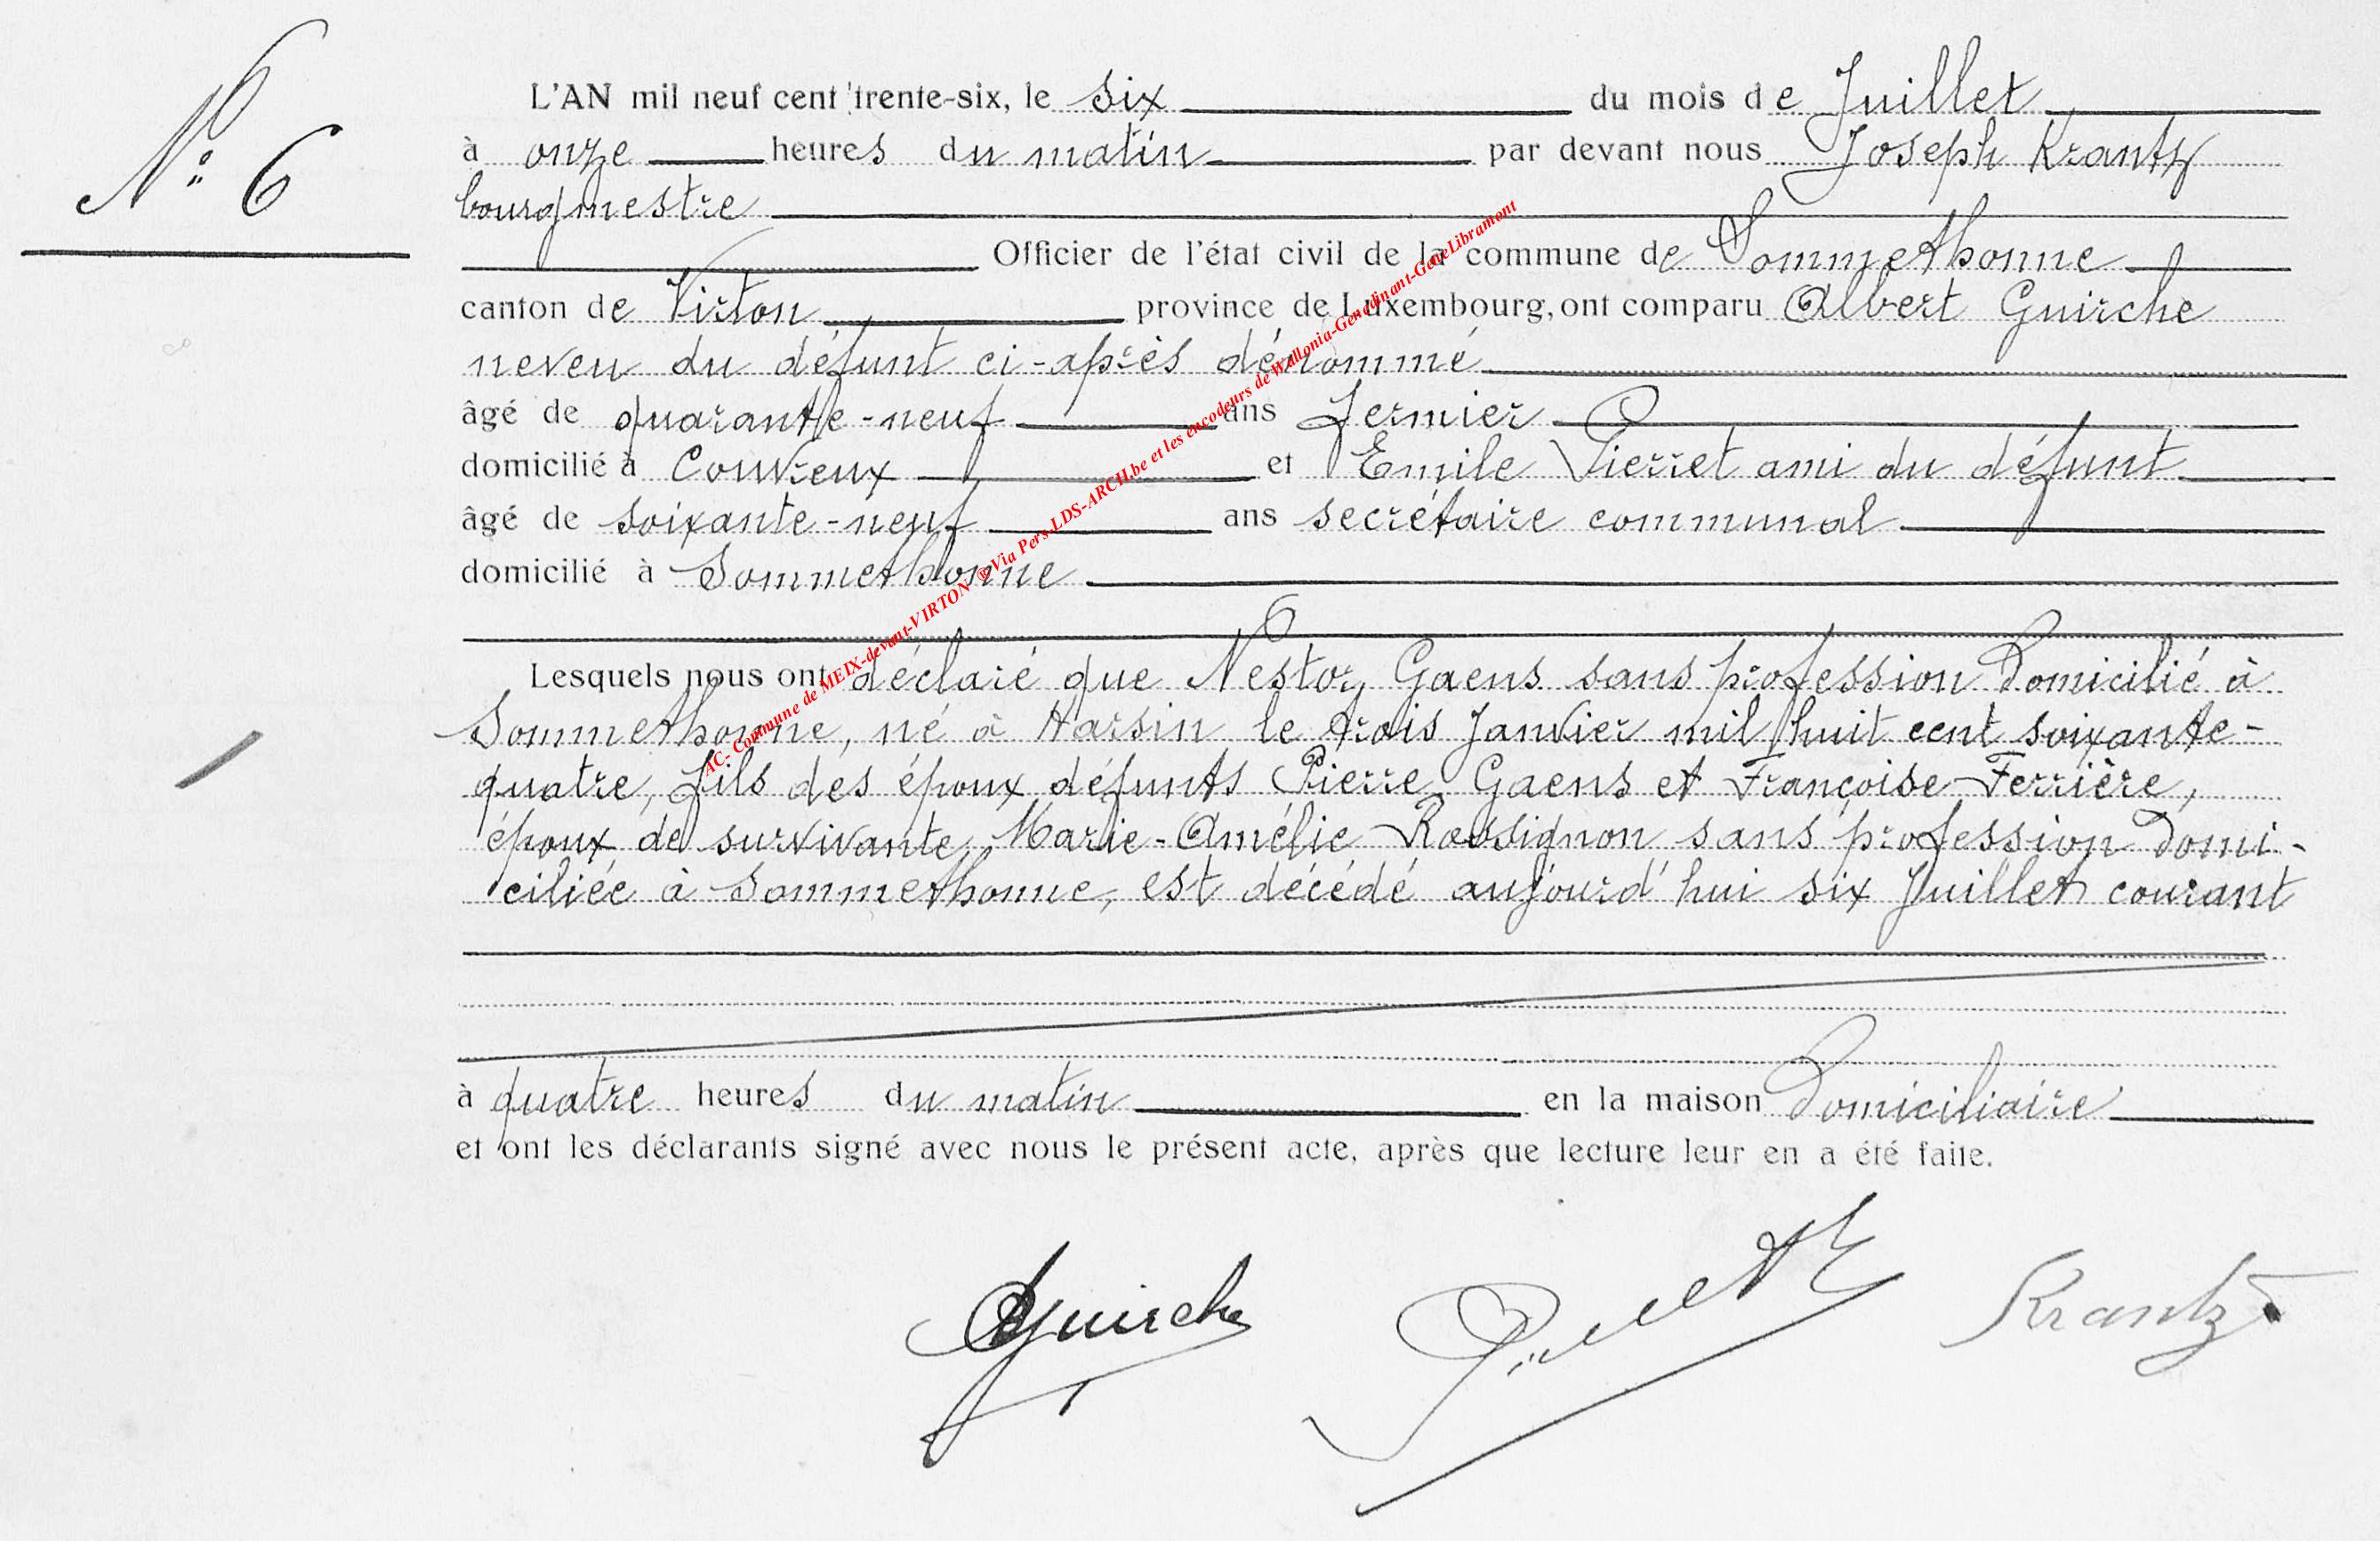 N° 6
L'AN mil neuf cent trente-six, le six du mois de Juillet
à onze heures du matin par devant nous Joseph Krantz
bourgmestre
Officier de l'état civil de la commune de Sommethonne
canton de Virton province de Luxembourg, ont comparu Albert Guirche
neveu du défunt ci-après dénommé
âgé de quarante-neuf ans fermier
domicilié à Couvreux et Emile Pierret ami du défunt
âgé de soixante-neuf ans secrétaire communal
domicilié à Sommethonne
Lesquels nous ont déclaré que Nestor Gaens sans profession domicilié à
Sommethonne, né à Harsin le trois Janvier mil huit cent soixante-
quatre, fils des époux défunts Pierre Gaens et Françoise Ferrière,
époux de survivante Marie-Amélie Rossignon sans profession domi-
ciliée à Sommethonne, est décédé aujourd'hui six Juillet courant
à quatre heures du matin en la maison domiciliaire
et ont les déclarants signé avec nous le présent acte, après que lecture leur en a été faite.
AGuirche Pierret Krantz
AC- Commune de MEIX-devant-VIRTON ®Via Pers-LDS-ARCH.be et les encodeurs de Wallonia-Genedinant-GaveLibramont